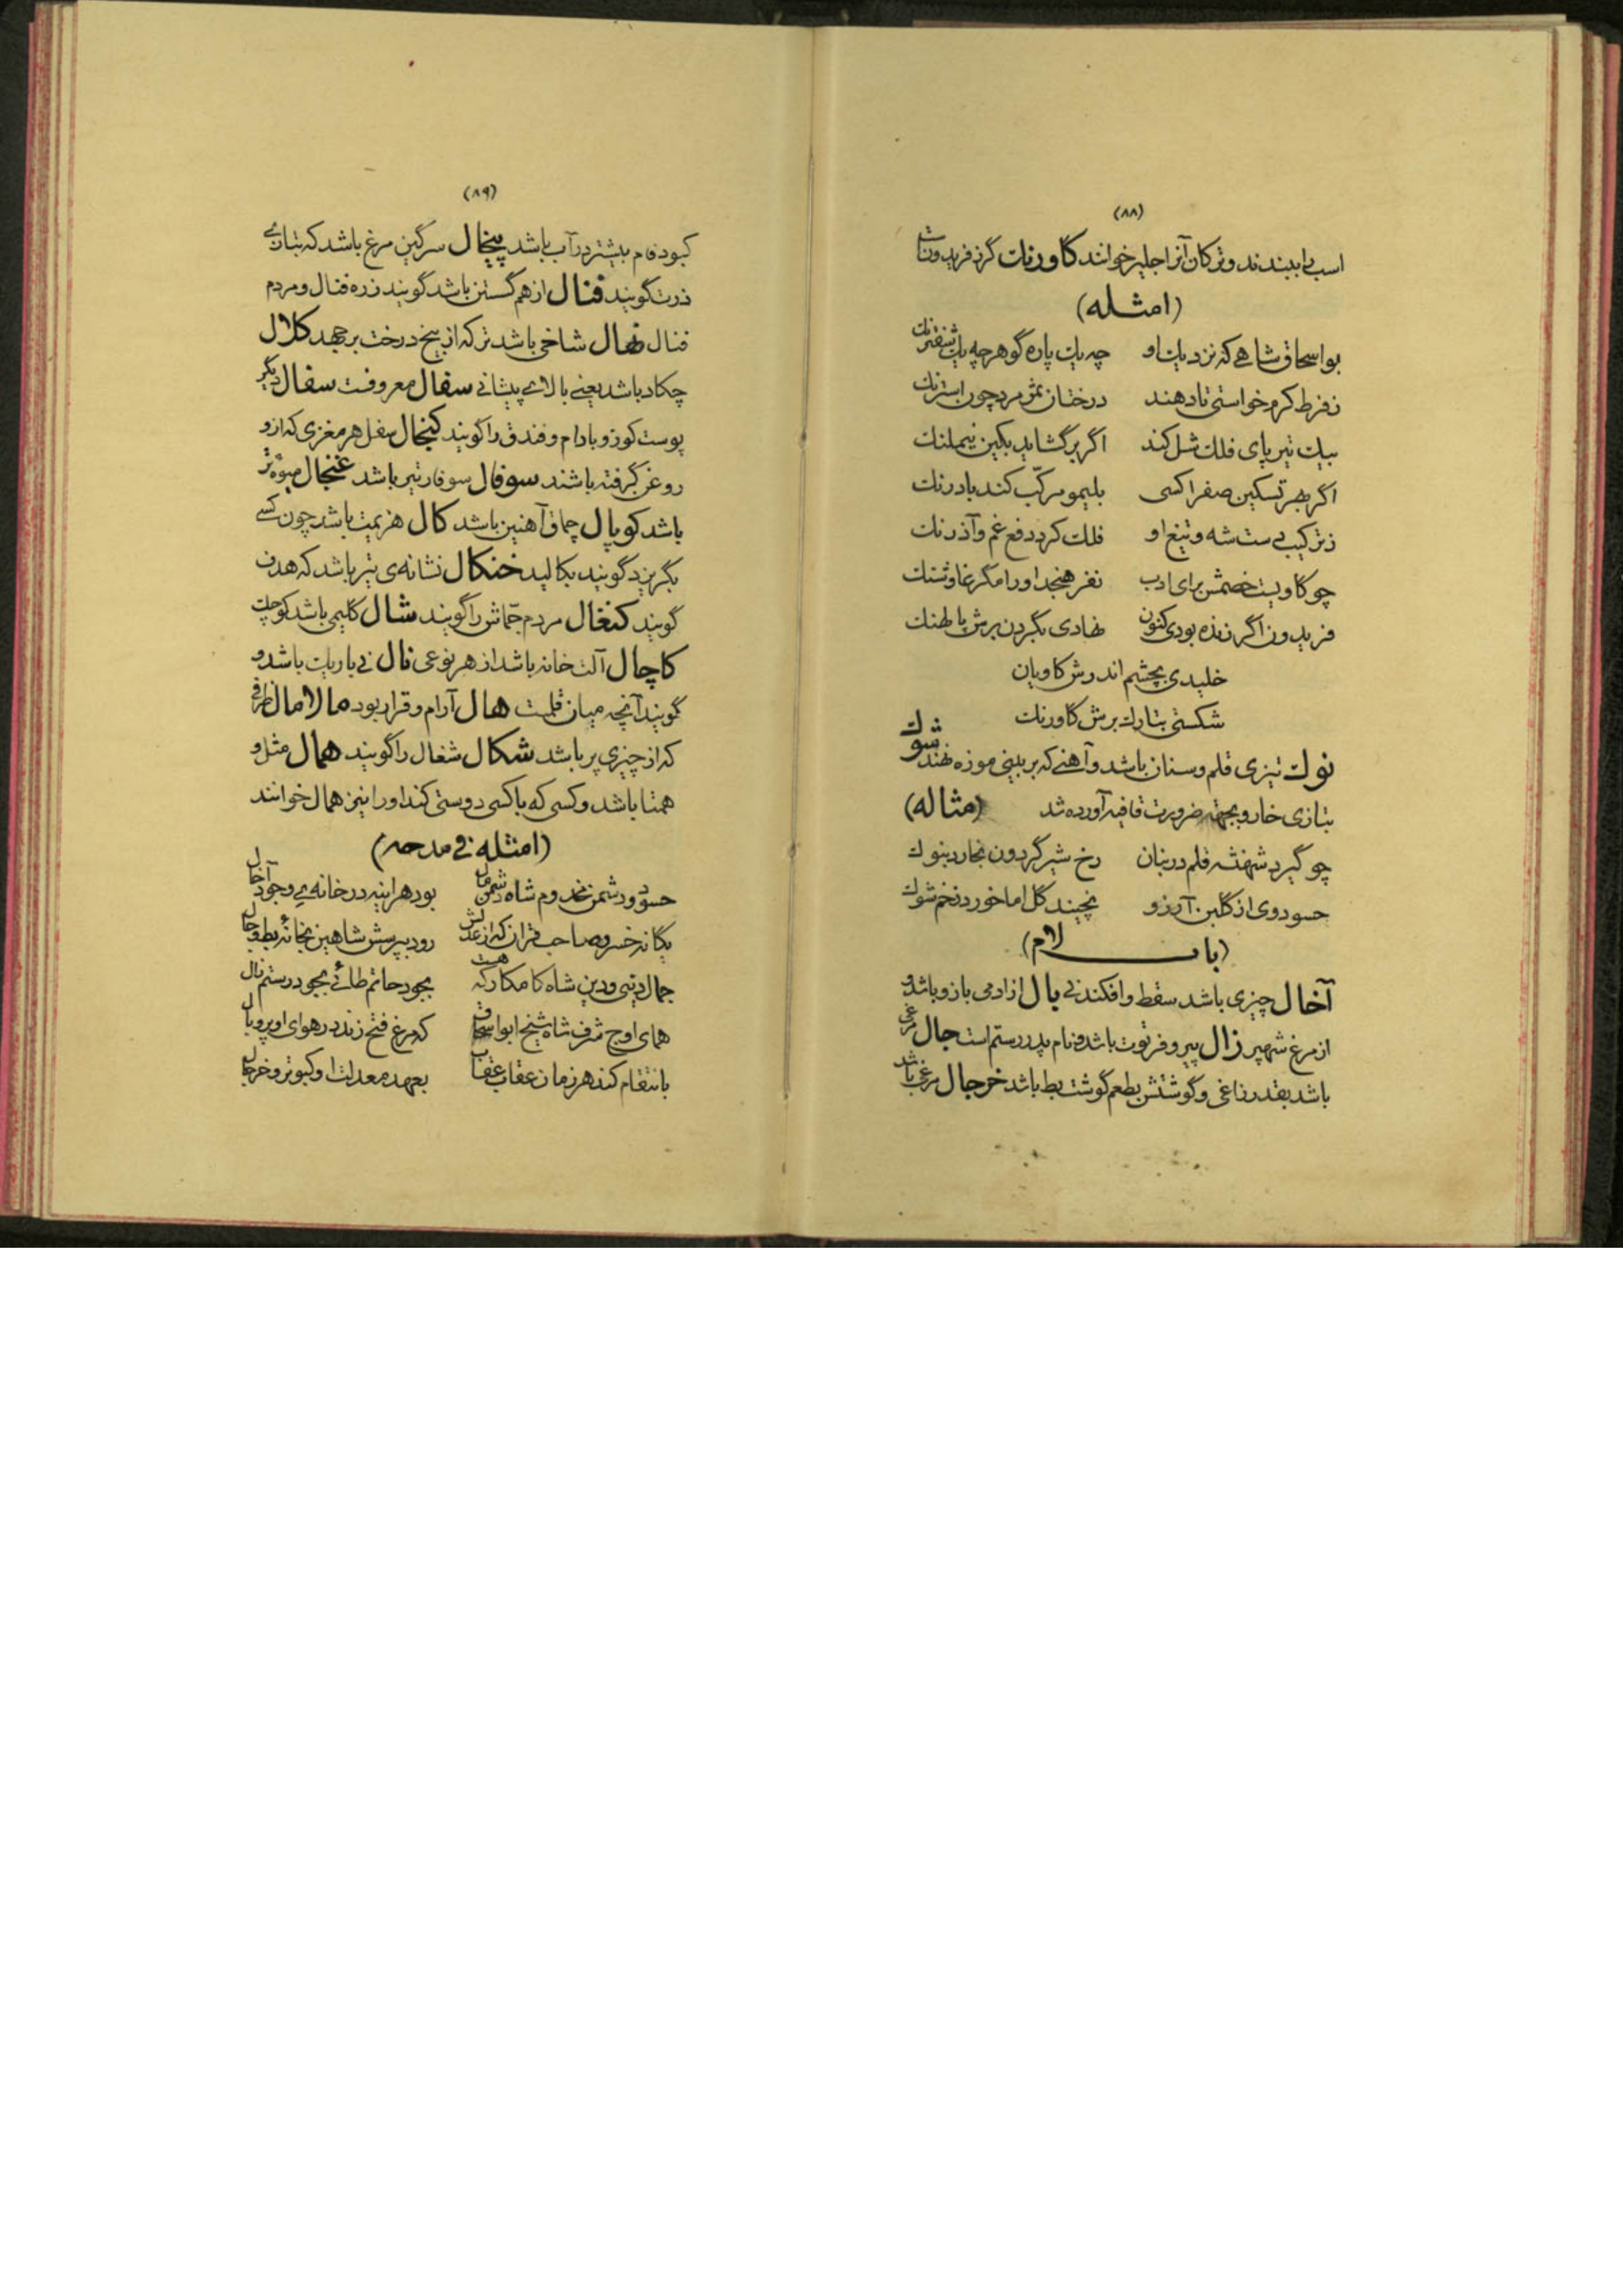 (۸۸)
اسب را ببندند و ترکان آنرا جلبر خوانند گاورنك گرز فریدونست
(امثله)
بواسحاق شاهی که نزدیك او چه یك پاره گوهر چه یك شفترنك
ز فرط کرم خواستی تا دهند درختان ثمر مردچون استرنك
بیك تیر پای فلك شل کند اگر برگشاید بکین نیملنك
اگر بهر تسکین صفرا کسی بلیمو مرکب کند بادرنك
ز ترکیب دست شه و تیغ او فلك کرد دفع غم و آذرنك
چو گاویست خصمش برای ادب نفر هنجد او را مگر غاوشنك
فریدون اگر زنده بودی کنون نهادی بگردن برش پالهنك
خلیدی بچشم اندرش کاویان
شکستی بتارك برش گاورنك
نوك تیزی قلم و سنان باشد و آهنی که بر بینی موزه نهند شوك
بتازی خار و بجهته ضرورت قافیه آورده شد (مثاله)
چو گیرد شهنشه قلم در بنان رخ شیر گردون بخارد بنوك
حسود وی از گلبن آرزو نچیند گل اما خورد زخم شوك
(باب لام)
آخال چیزی باشد سقط و افکندنی یال از ادمی بازو باشد و
از مرغ شهپر زال پیر و فرتوت باشد و نام پدر رستم است جال مرغی
باشد بقدر زاغی و گوشتش بطعم گوشت بط باشد خرجال مرغی باشد
(۸۹)
کبود فام بیشتر در آب باشد پیخال سرگین مرغ باشد که بتازی
ذرت گویند فنال از هم گسستن باشد گویند زره فنال و مردم
فنال نهال شاخی باشد تر که از بیخ درخت برجهد کلال
چکاد باشد یعنی بالای پیشانی سفال معروفست سفال دیگر
پوست کوز و بادام و فندق را گویند کنجال سفل هر مغزی که ازو
روغن گرفته باشند سوفال سوفار تیر باشد غنجال میوه تر
باشد کوپال چماق آهنین باشد کال هزیمت باشد چون کسی
بگریزد گویند بکالید خنکال نشانه‌ی تیر باشد که هدف
گویند کنغال مردم جماش را گویند شال گلیمی باشد کوچك
کاچال آلت خانه باشد از هر نوعی نال نی باریك باشد و
گویند آنچه میان قلمست هال آرام و قرار بود مالامال ظرفی
که از چیزی پر باشد شکال شغال را گویند همال مثل و
همتا باشد و کسی که با کسی دوستی کند او را نیز همال خوانند
(امثله فی مدحه)
حسود و دشمن مخدوم شاه دشمن مال بود هراینه در خانه‌ی وجود آخال
یگانه خسرو صاحب قران که از عدلش رود بپرسش شاهین بخانهٔ بط و جال
جمال دنیی و دین شاه کامکار که هست بجود حاتم طائی بجود رستم زال
همای اوج شرف شاه شیخ ابو اسحاق که مرغ فتح زند در هوای او پر و بال
بانتقام کند هر زمان عقاب عقاب بعهد معدلت او کبوتر و خرجال